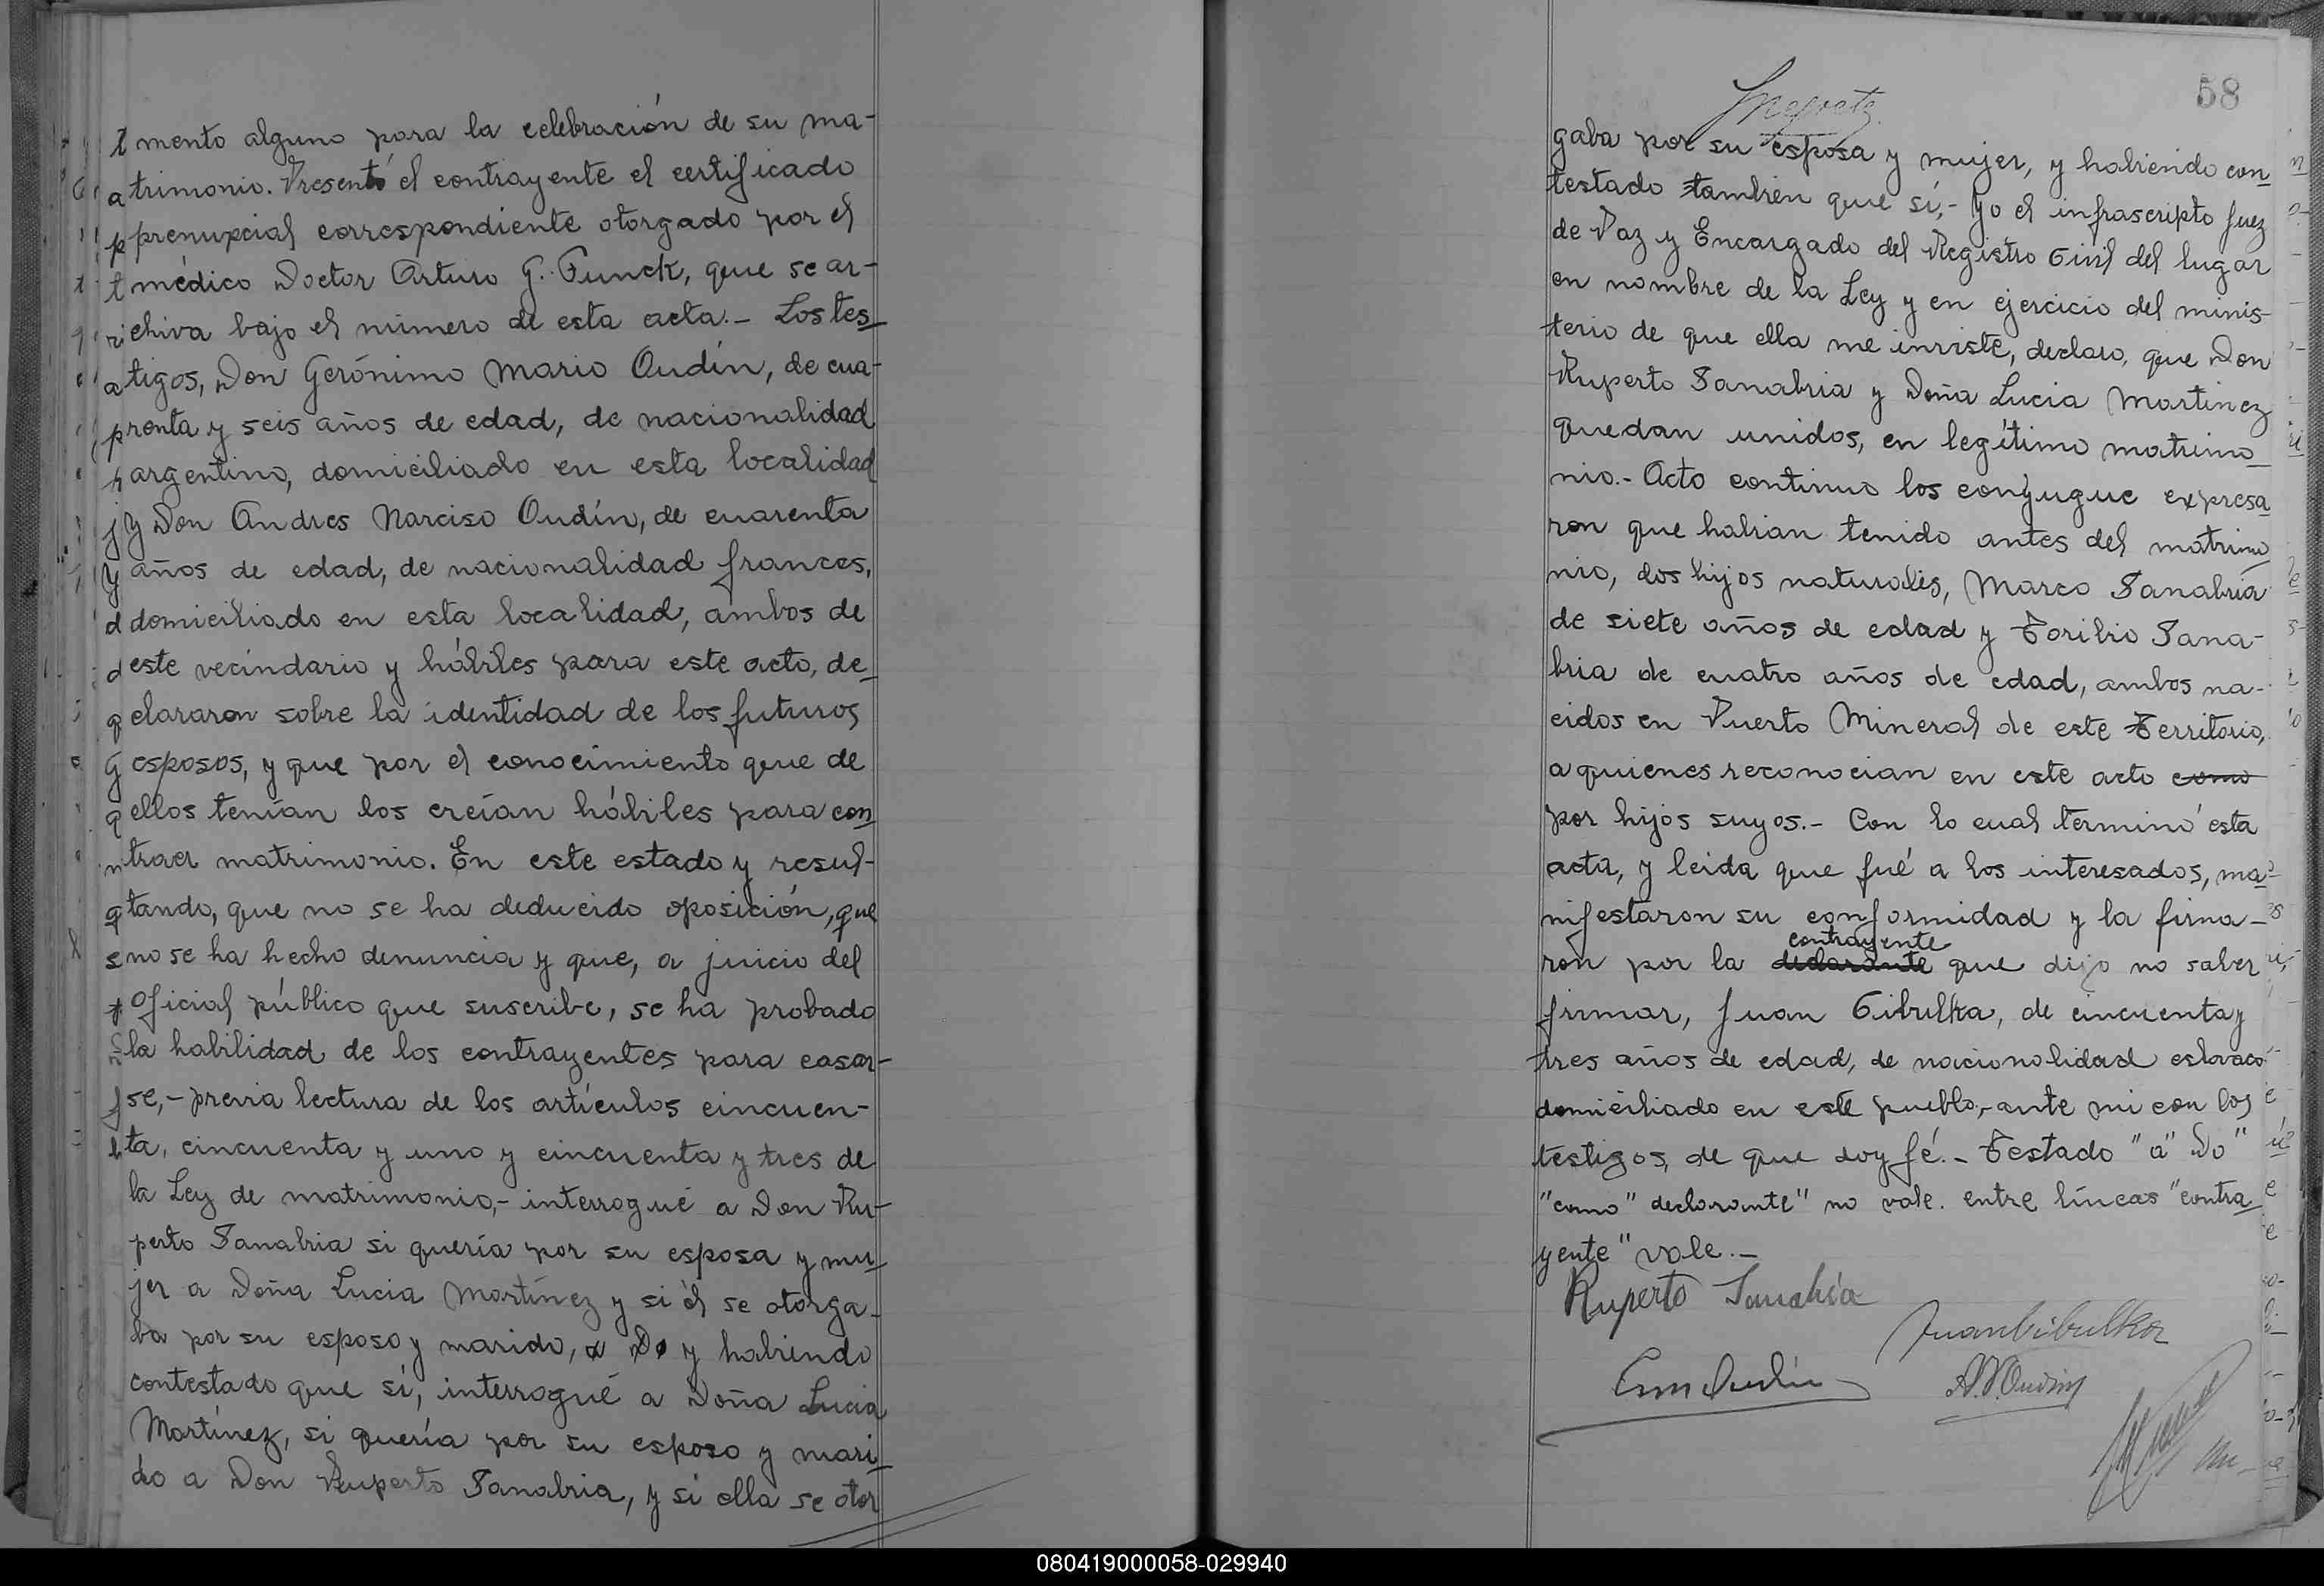 mento alguno para la celebración de su ma-
trimonio. Presentó el contrayente el certificado
prenupcial correspondiente otorgado por el
médico Doctor Arturo G. Funck, que se ar-
chiva bajo el número de esta acta.- Los tes-
tigos, Don Gerónimo Mario Oudín, de cua-
renta y seis años de edad, de nacionalidad
argentino, domiciliado en esta localidad
y Don Andres Narciso Oudín, de cuarenta
años de edad, de nacionalidad frances,
domiciliado en esta localidad, ambos de
este vecindario y hábiles para este acto, de-
clararon sobre la identidad de los futuros
esposos, y que por el conocimiento que de
ellos tenían los creían hábiles para con-
traer matrimonio. En este estado y resul-
tando, que no se ha deducido oposición, que
no se ha hecho denuncia y que, a juicio del
Oficial público que suscribe, se ha probado
la habilidad de los contrayentes para casar-
se,- previa lectura de los artículos cincuen-
ta, cincuenta y uno y cincuenta y tres de
la Ley de matrimonio,- interrogué a Don Ru-
perto Sanabria si quería por su esposa y mu-
jer a Doña Lucia Martínez y si él se otorga-
ba por su esposo y marido, a Do y habiendo
contestado que sí, interrogué a Doña Lucia
Martínez, si quería por su esposo y mari-
do a Don Ruperto Sanabria, y si ella se otor
58
gaba por su esposa y mujer, y habiendo con-
testado tambien que sí,- Yo el infrascripto Juez
de Paz y Encargado del Registro Civil del lugar
en nombre de la Ley y en ejercicio del minis-
terio de que ella me inviste, declaro, que Don
Ruperto Sanabria y Doña Lucia Martinez
quedan unidos, en legítimo matrimo-
nio.- Acto continuo los conyugue expresa-
ron que habian tenido antes del matrimo-
nio, dos hijos naturales, Marco Sanabria
de siete años de edad y Toribio Sana-
bria de cuatro años de edad, ambos na-
cidos en Puerto Mineral de este Territorio,
a quienes reconocian en este acto como
por hijos suyos.- Con lo cual terminó esta
acta, y leida que fué a los interesados, ma-
nifestaron su conformidad y la firma-
contrayente
ron por la declarante que dijo no saber
firmar, Juan Cibulka, de cincuenta y
tres años de edad, de nacionalidad eslovaco
domiciliado en este pueblo,- ante mi con los
testigos, de que doy fé.- Testado "a" Do"
"como" declarante" no vale. entre líneas "contra-
yente" vale.-
Ruperto Sanabria
Juan Cibulka
A. N. Oudin
080419000058-029940